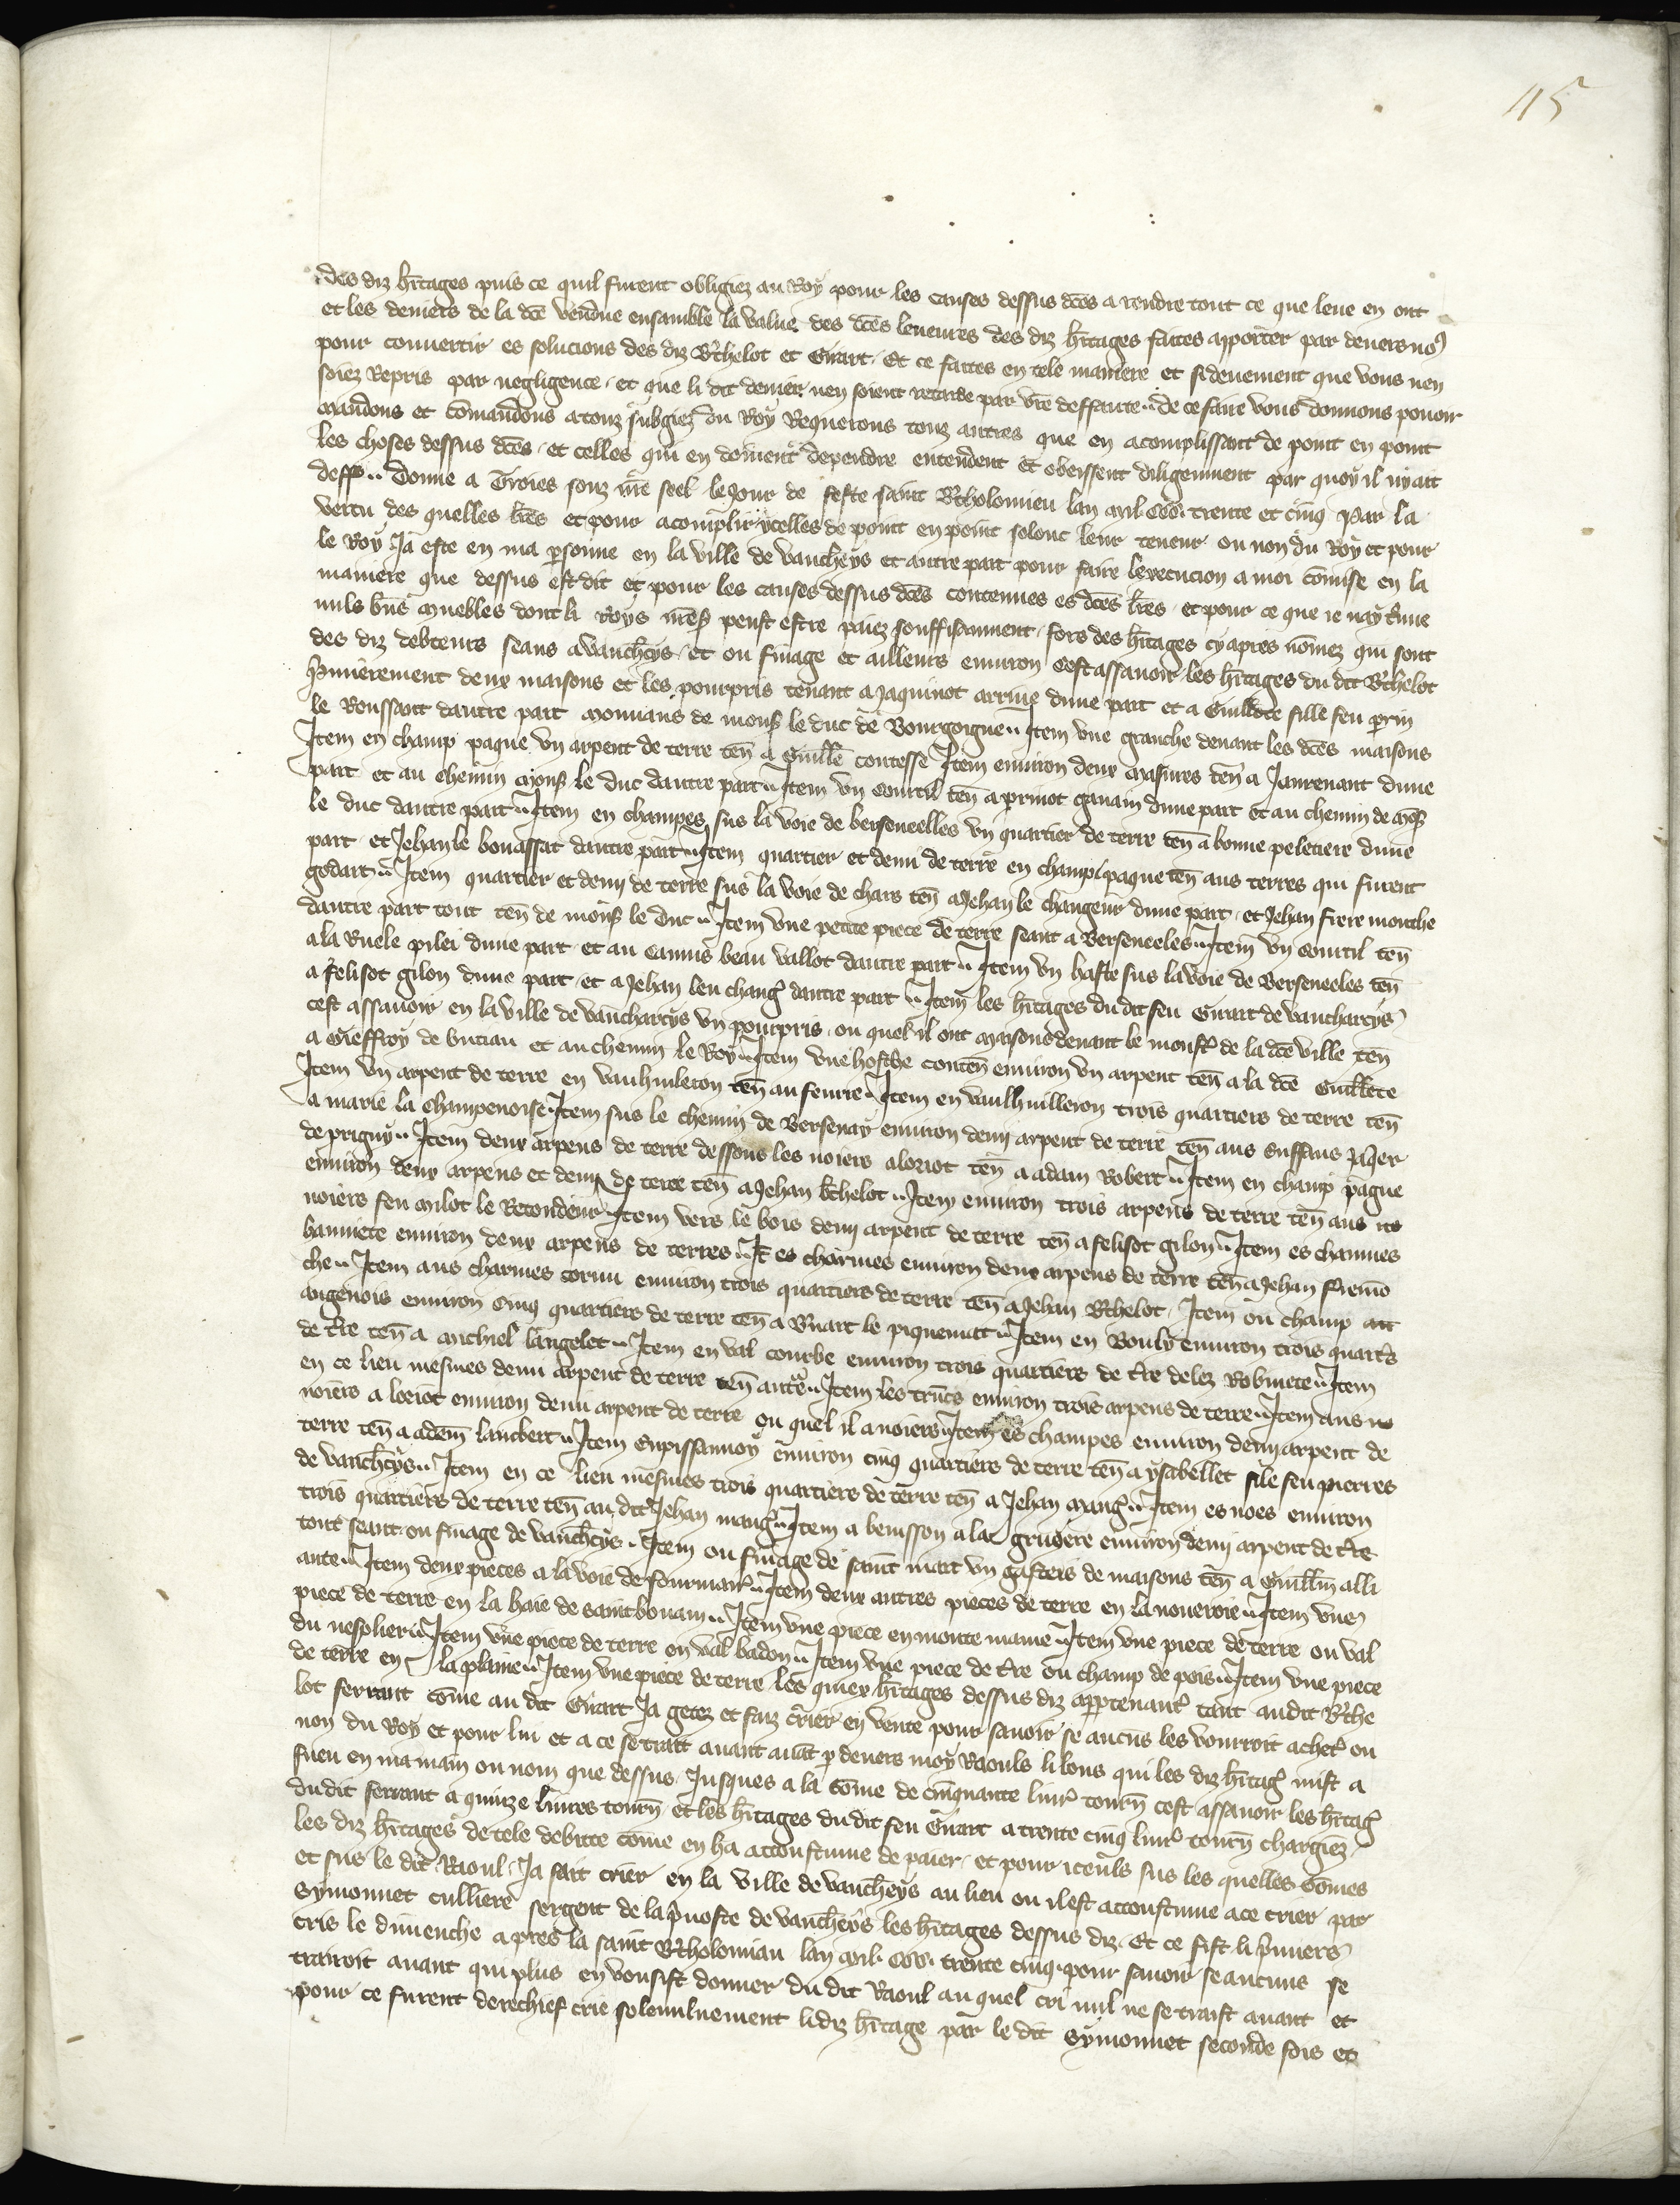 115
des diz hītages puis ce quil furent obligiez au Roy pour les causes dessus dc̄es a rendre tout ce que leue en ont
et les deniers de la dc̄e vendue ensamble la value des dc̄es leueures des diz hītages faites apporter par deuers no9
pour conuertir es solucions des diz B'thelot et Girart. Et ce faites en tele maniere et si deuement que vous nen
soiez repris par negligence. et que li dit denier nen soient retarde par vr̄e deffaute.. de ce faire vous donnons pouoir
Mandons et cōmandons a touz subgiez du Roy Requerons touz autres que en acomplissant de point en point
les choses dessus dc̄es. et celles qui en doiuent dependre entendent et obeissent diligemment par quoy il nyait
deff.. Donne a Troies souz nr̄e seel le jour de feste saint B'tholomieu lan mil. CCC. trente et cinq Par la
vertu des quelles lr̄es et pour acomplir ycelles de point en point solonc leur teneur ou non du Roy et pour
le Roy Ja este en ma p̄sonne en la ville de vaucheys et autre part pour faire lexecucion a moi cōmise en la
maniere que dessus est dit et pour les causes dessus dc̄es contenues es dc̄es lr̄es. et pour ce que ie nay t'uue
nuls b̄ns muebles dont li Roys nr̄es peust estre paiez souffisamment. fors des hītages cy apres nōmez qui sont
des diz debteurs seans a vauch̄eys. et ou finage et ailleurs enuiron cest assauoir les hītages du dit B'thelot
P̄mierement deux maisons et les pourpris tenant a Jaquinot arrine dune part et a Guillote fille feu p̄rin
le Roussant dautre part mouuans de mons̄ le duc de Bourgoigne.. Item vne granche deuant les dc̄es maisons
Item en champ paque vn arpent de terre ten̄ a Guill̄e contesse Item enuiron deux masures ten̄ a Jaurenaut dune
part et au chemin mons̄ le duc dautre part.. Item vn courtil ten̄ a p̄rinot gauain dune part et au chemin de mōs̄
le duc dautre part.. Item en champes sus la voie de berseneelles vn quartier de terre ten̄ a bonne peletiere dune
part et Jehan le bouassat dautre part.. Item quartier et demi de terre en champ paque ten̄ aus terres qui furent
godart.. Item quartier et demj de terre sus la voie de chars ten̄ a Jehan le changeur dune part. et Jehan frere mouche
dautre part tout ten̄ de mons̄ le duc.. Item vne petite piece de terre seant a Berseneeles.. Item vn courtil ten̄
a la Ruele pilei dune part et au camus beau vallot dautre part.. Item vn haste sus la voie de Berseneeles ten̄
a felisot gilon dune part. et a Jehan leu chang' dautre part.. Item les hītages du dit feu Girart de vaucharcys
cest assauoir en la ville de vaucharcys vn pourpris. ou quel il ont maisons deuant le moust' de la dc̄e ville ten̄
a Gieffroy de buciau et au chemin le Roy.. Item vne hosche conten̄ enuiron vn arpent ten̄ a la dc̄e Guillete
Item vn arpent de terre en vauhuileron ten̄ au feurre.. Item en vaulhuilleron trois quartiers de terre ten̄
a marie la champenoise. Item sus le chemin de Bersenay enuiron demj arpent de terre ten̄ aus enffans P̄ier
de prigny.. Item deux arpens de terre dessous les noiers aloriot ten̄ a adam Robert.. Item en champ pague
enuiron deux arpens et demj de terre ten̄ a Jehan b'thelot.. Item enuiron trois arpens de terre ten̄ aus
noiers feu milot le Retondeur. Item vers le bois demj arpent de terre ten̄ a felisot gilon.. Item es chaumes
hanniete enuiron deux arpens de terres.. It̄ es charmes enuiron deux arpens de terre ten̄ a Jehan fremo
che.. Item aus charmes cornu enuiron trois quartiers de terre ten̄ a Jehan B'thelot. Item ou champ au
angenois enuiron cinq quartiers de terre ten̄ a Girart le piquenuit.. Item en Bouly enuiron trois quart's
de t're ten̄ a michiel langelet.. Item en val courbe enuiron trois quartiers de t're delez Robinete.. Item
en ce lieu mesmes demi arpent de terre ten̄ aut'e.. Item les trūcs enuiron trois arpens de terre.. Item aus
noiers a loriot enuiron demi arpent de terre ou quel il a noiers.. Item es champes enuiron demj arpent de
terre ten̄ a adem̄ lanbert.. Item Enpissannoy enuiron cinq quartiers de terre ten̄ a ysabellet fille feu pierres
de vauch̄eys.. Item en ce lieu mesmes trois quartiers de terre ten̄ a Jehan maug'.. Item es noes enuiron
trois quartiers de terre ten̄ au dit Jehan maug'.. Item a buisson a la gruiere enuiron demj arpent de t're
tout seant ou finage de vauch̄eys. Item ou finage de saint mart vn gasteis de maisons ten̄ a Guill̄m alli
ante.. Item deux pieces a la voie de fourmar'.. Item deux autres pieces de terre en la noueroie.. Item vne
piece de terre en la haie de saint bouam.. Item vne piece en monte maine.. Item vne piece de terre ou val
du nesplier.. Item vne piece de terre ou val badon.. Item vne piece de t're ou champ de pois.. Item vne piece
de terre en la plaine.. Item vne piece de terre les quiex hītages dessus diz appartenant' tant audit B'the
lot ferrant cōme au dit Girart Ja getez et faiz crier en vente pour sauoir se aucūs les vourroit achet' ou
non du Roy et pour lui et a ce se trait auant auāt p̄ deuers moy Raouls li lous qui les diz hītag' mist a
fueu en ma main ou nom que dessus. Jusques a la sōme de cinquante liur' tourn̄ cest assauoir les hītag'
du dit ferrant a quinze liures tourn̄ et les hītages du dit feu Girart a trente cinq liur' tourn̄ chargiez
les diz hītages de tele debitte cōme en ha accoustume de paier. et pour iceuls sus les quelles sōmes
et sus le dit Raoul. Ja fait crier en la ville de vauch̄eys au lieu ou il est accoustume a ce crier par
Symonnet culliere sergent de la p̄uoste de vauch̄eys les hītages dessus diz. Et ce fist li p̄miers
cris le dimenche apres la saint B'tholomiau lan mil. CCC. trente cinq. pour sauoir se aucuns se
trairoit auant qui plus en vousist donner du dit Raoul au quel cri nul ne se traist auant et
pour ce furent derechief crie solemnluement li diz hītage par le dit Symonnet seconde fois et